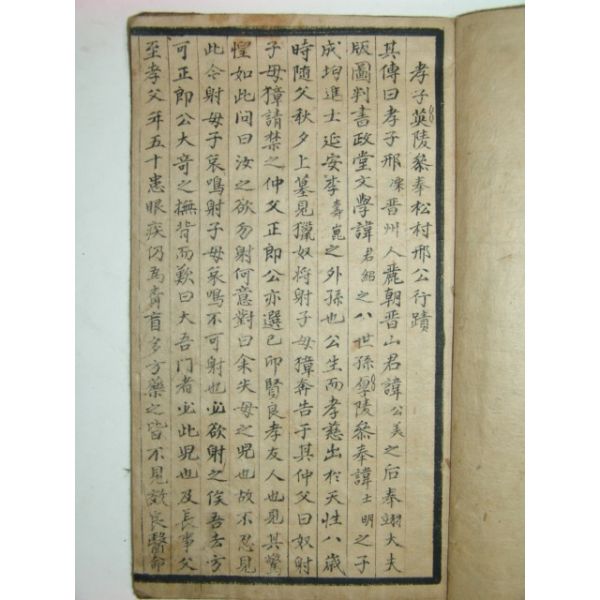 孝子英陵參奉松村邢公行蹟
其傳曰孝子邢溁晋州人麗朝晋山君諱公美之后奉翊大夫
版圖判書政堂文學諱君紹之八世孫厚陵參奉諱士明之子
成均進士延安李壽崑之外孫也公生而孝慈出於天性八歲
時隨父秋夕上墓見獵奴將射子母獐奔告于其仲父曰奴射
子母獐請禁之仲父正郎公亦選己卯賢良孝友人也見其驚
惶如此問曰汝之欲勿射何意對曰余失母之兒也故不忍見
此令射母子哀鳴射子母哀鳴不可射也必欲射之俟吾去方
可正郎公大奇之撫背而歎曰大吾門者必此兒也及長事父
至孝父年五十患眼疾仍爲靑盲多方藥之皆不見效良醫命